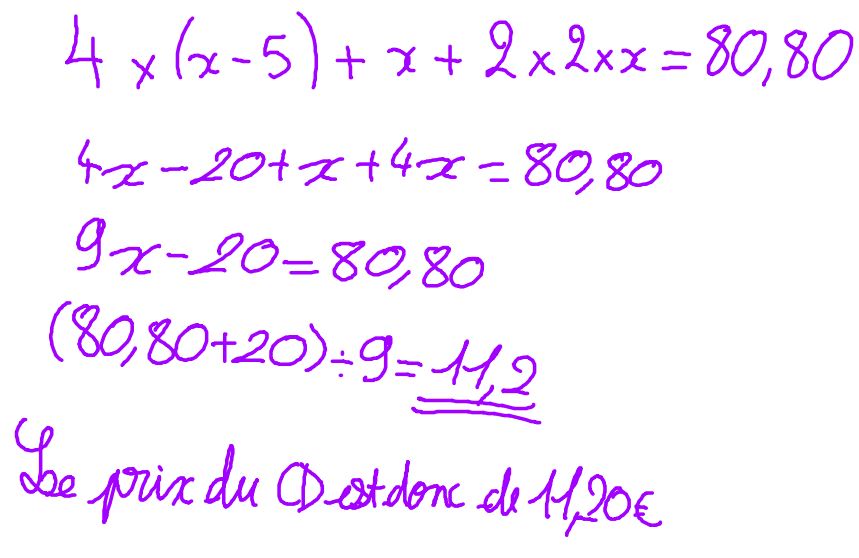 4 × (x - 5) + x + 2 × 2 × x = 80,80
4x - 20 + x + 4x = 80,80
9x - 20 = 80,80
(80,80 + 20) ÷ 9 = 11,2
Le prix du CD est donc de 11,20€